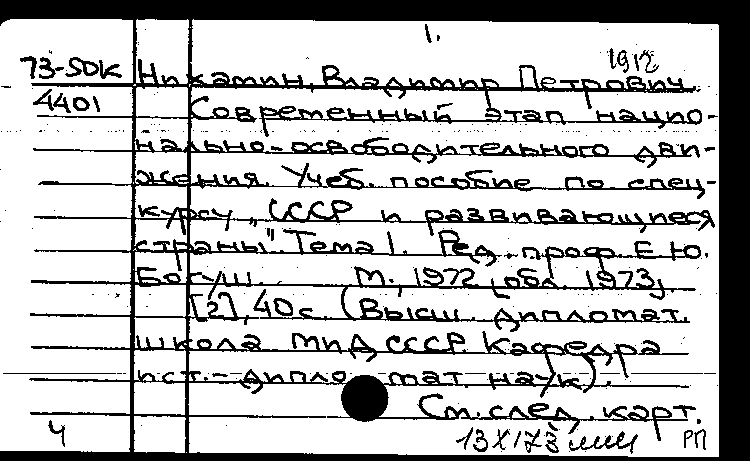 1.
1912
73-50К Никамин, Владимир Петрович.
4401 Современный этап нацио-
нально-освободительного дви-
жения. Учеб. пособие по спец-
курсу „СССР и развивающиеся
страны" Тема 1. Ред. проф. Е.Ю.
Богуш. М., 1972 [обл. 1973].
[2], 40 с. (Высш. дипломат.
школа МИД СССР. Кафедра
ист.-диплomat. наук).
См. след. карт.
Ч 13X173 мин РП